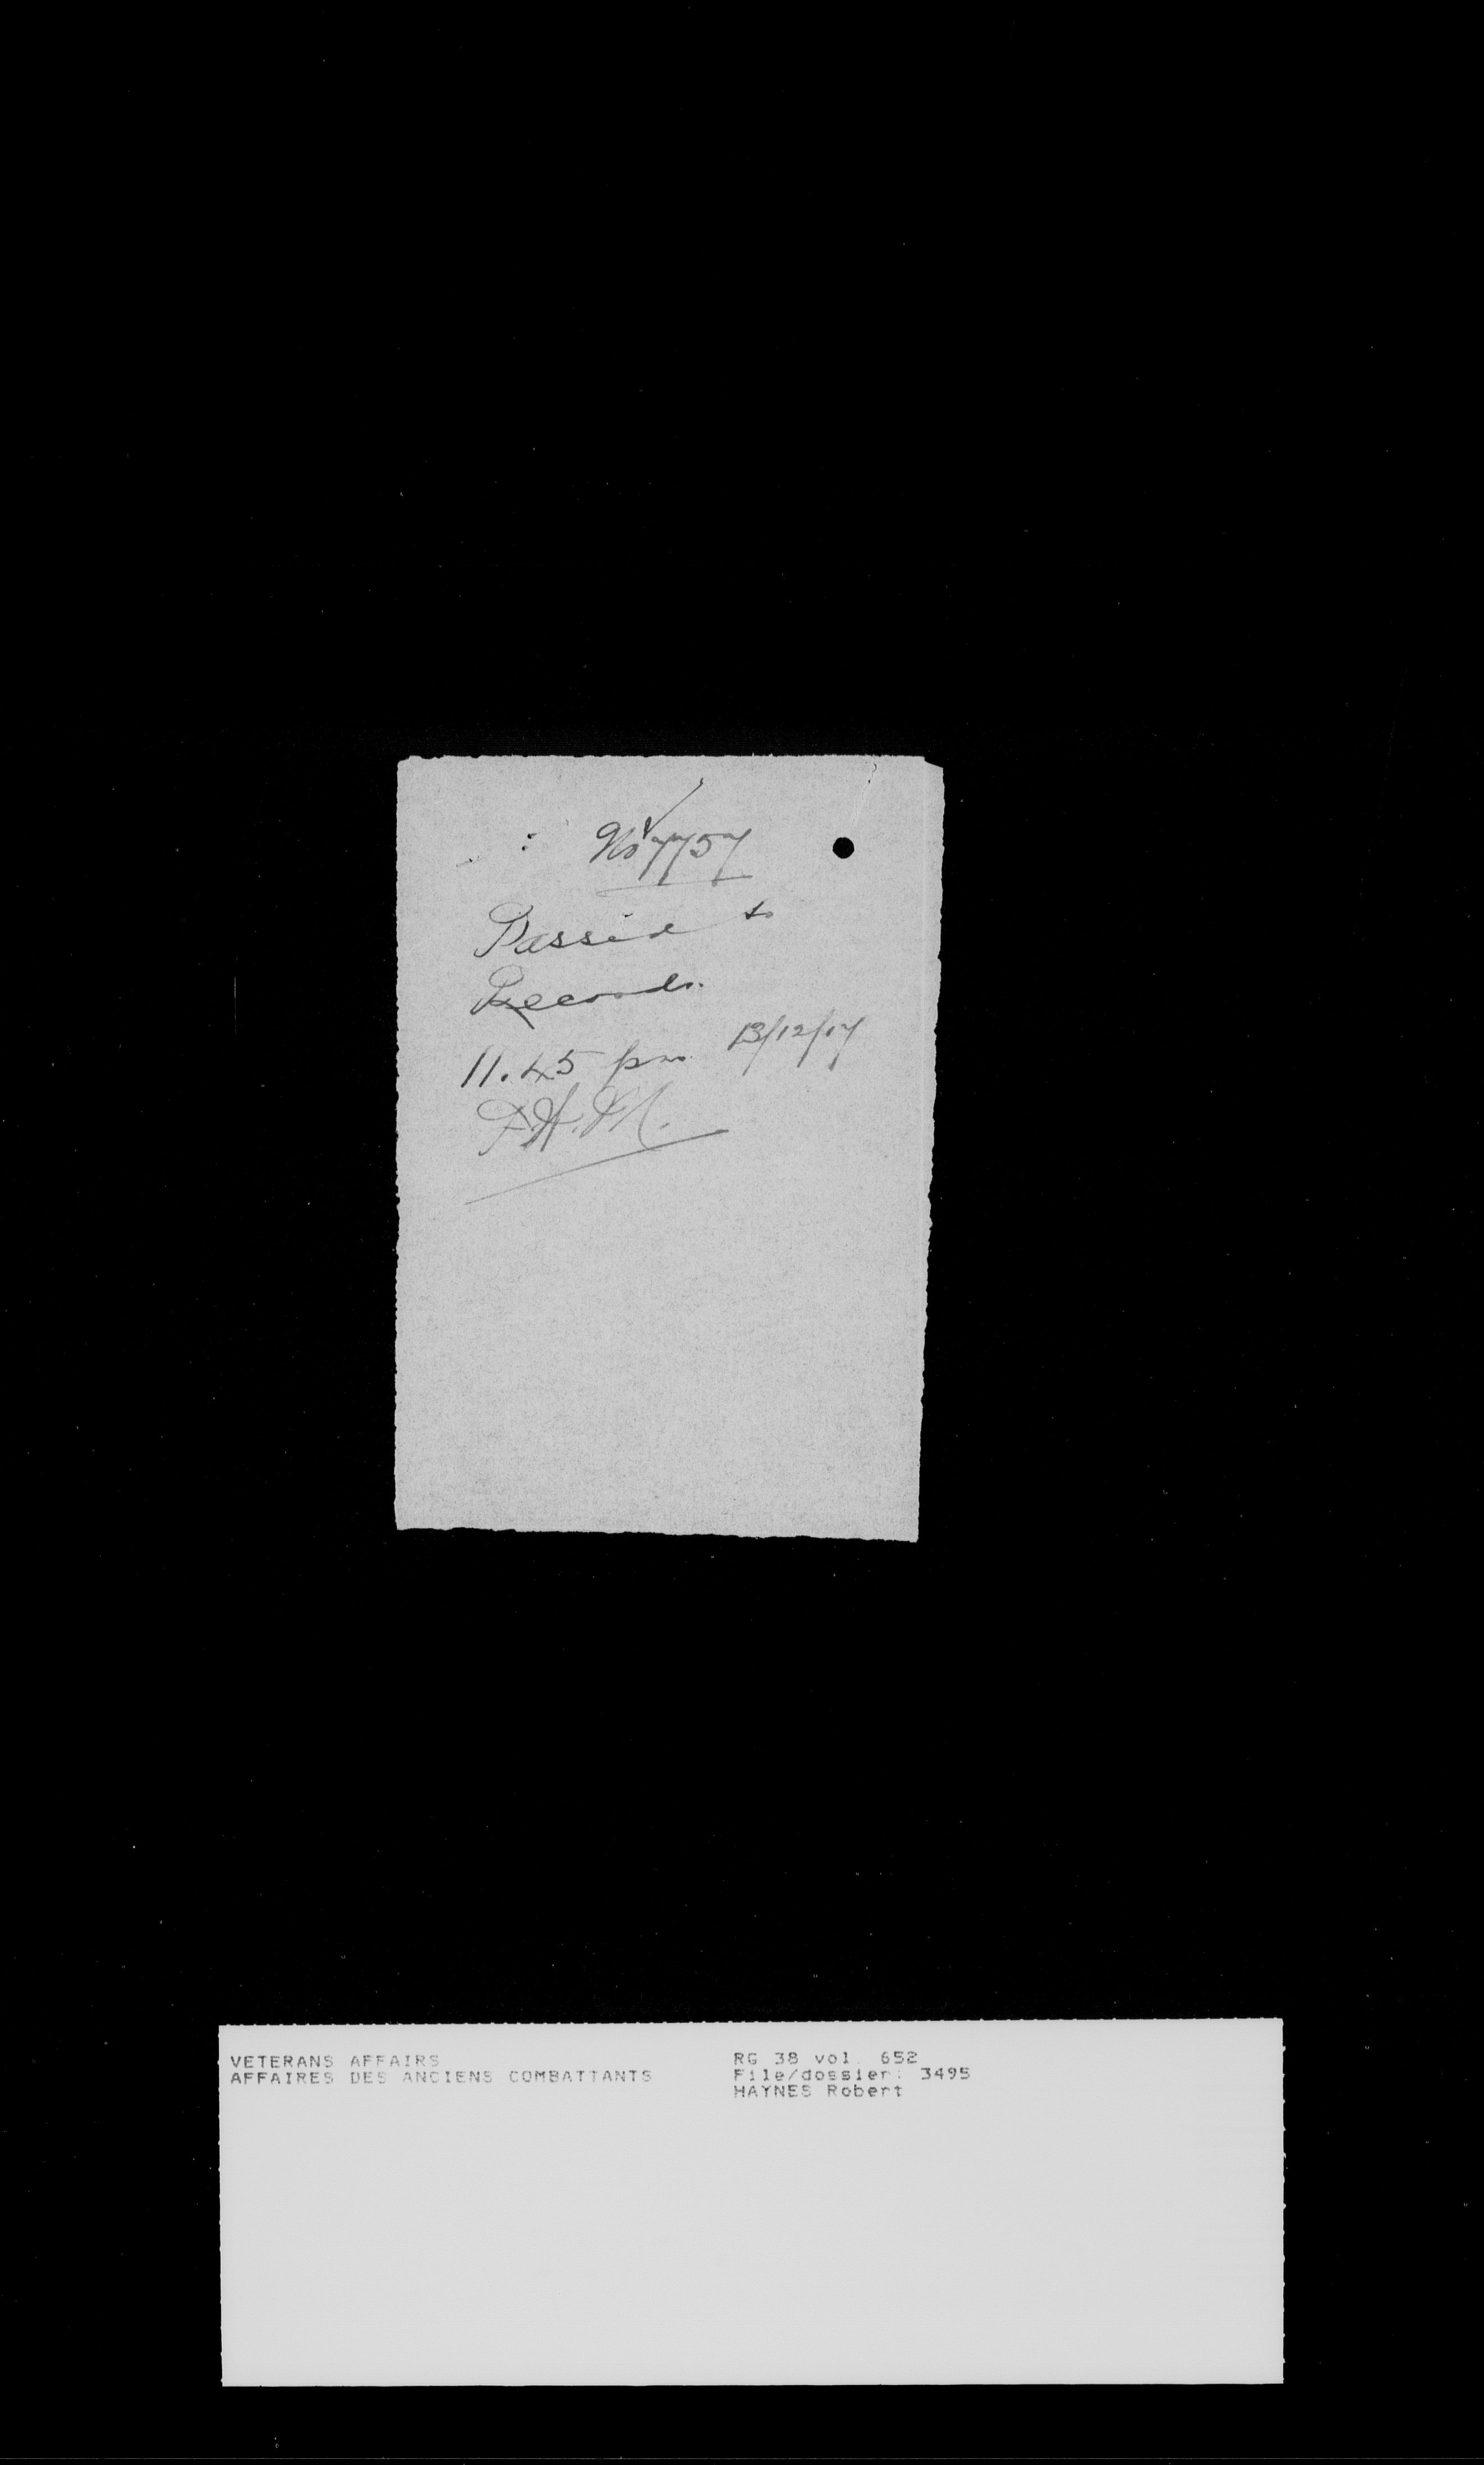 No 7757
Passed to
Records.
11.45 pm 13/12/17
VETERANS AFFAIRS
AFFAIRES DES ANCIENS COMBATTANTS
RG 38 vol. 652
File/dossier: 3495
HAYNES Robert